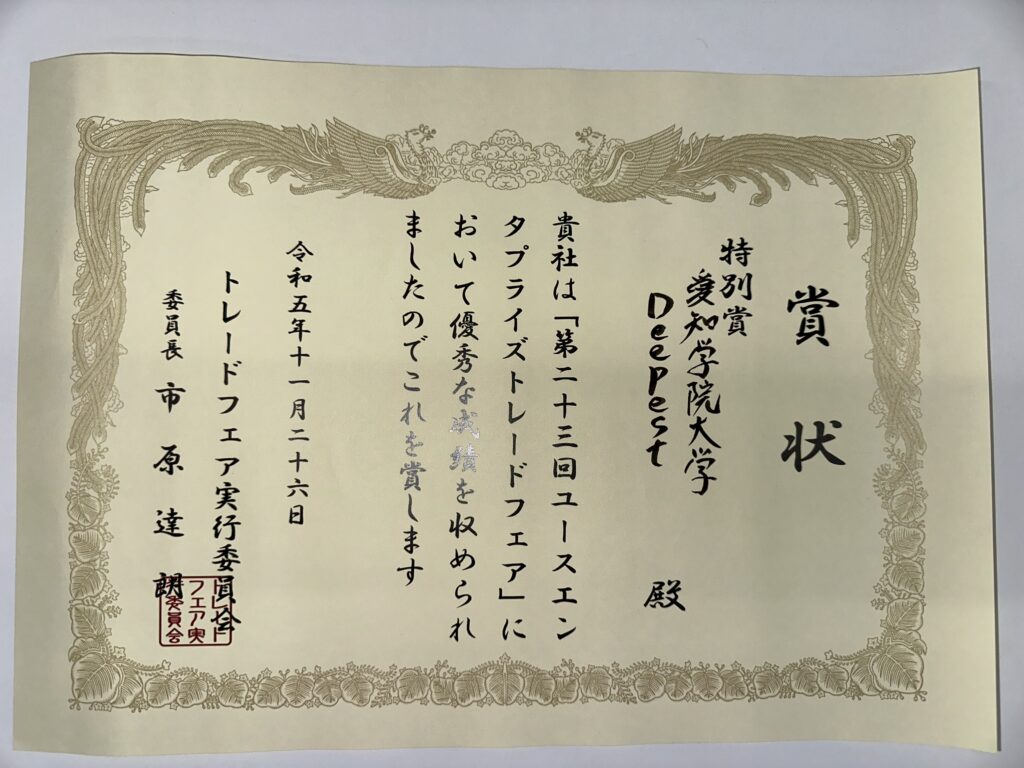 賞状
特別賞
愛知学院大学
Deepest 殿
貴社は「第二十三回ユースエン
タプライズトレードフェア」に
おいて優秀な成績を収められ
ましたのでこれを賞します
令和五年十一月二十六日
トレードフェア実行委員会
委員長 市原達朗
トレード
フェア実
行委員会